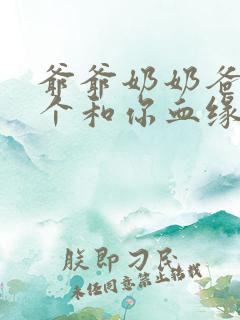 爷爷奶奶爸
个和你血缘
朕即刁民
未经同意禁止转载